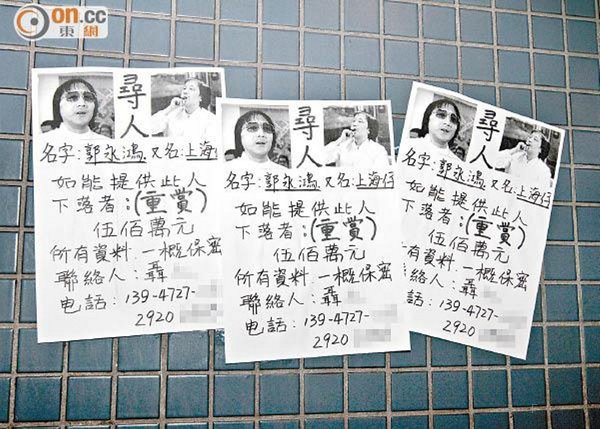 on.cc
東網
尋
人
名字:郭永鴻 又名:上海仔
如能提供此人
下落者:(重賞)
伍佰萬元
所有資料 一概保密
聯絡人:聶
电話:139-4727-
2920
尋
人
名字:郭永鴻 又名:上海仔
如能提供此人
下落者:(重賞)
伍佰萬元
所有資料 一概保密
聯絡人:聶
电話:139-4727-
2920
尋
人
名字:郭永鴻 又名:上海仔
如能提供此人
下落者:(重賞)
伍佰萬元
所有資料 一概保密
聯絡人:聶
电話:139-4727-
2920